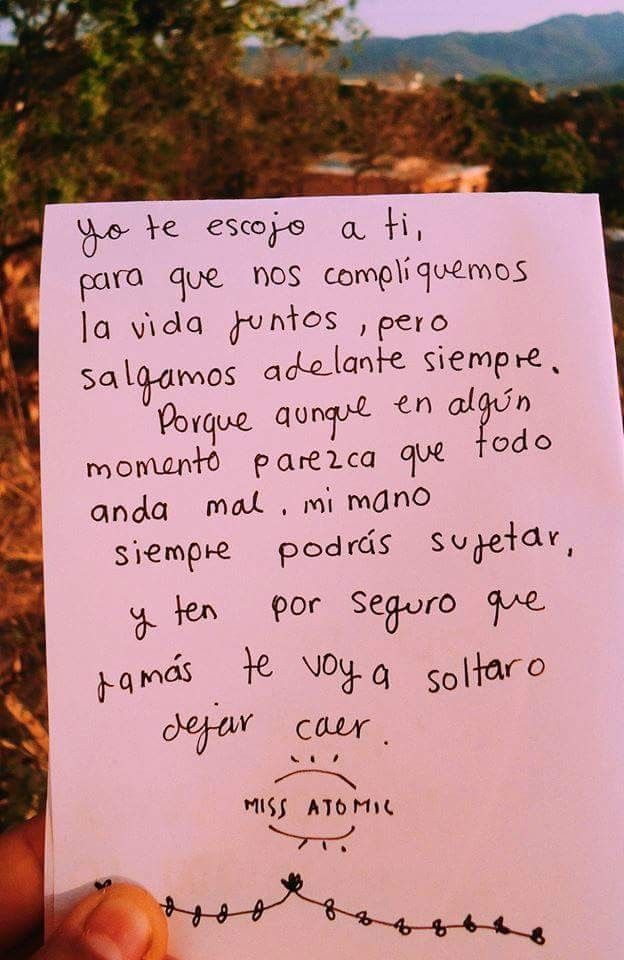 Yo te escojo a ti,
para que nos compliquemos
la vida juntos, pero
salgamos adelante siempre.
Porque aunque en algún
momento parezca que todo
anda mal. mi mano
siempre podrás sujetar,
y ten por seguro que
jamás te voy a soltar o
dejar caer.
MISS ATOMIC